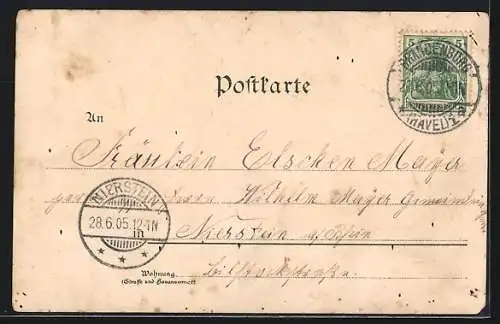 5 5
BRANDENBURG
(HAVEL) 1
Postkarte
An
Fräulein Elschen Mayer
Wilhelm Mayer
NIERSTEIN
28.6.05.12-1N
in Nierstein a/Rhein
Wohnung
(Straße und Hausnummer)